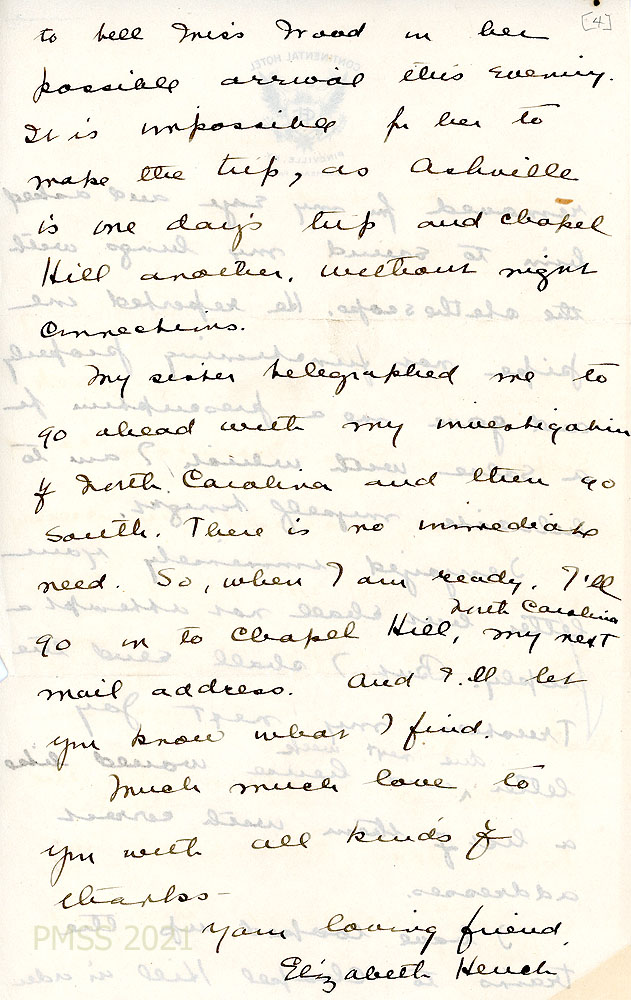 [4]
to tell Miss Wood in her
possible arrival this evening.
It is impossible for her to
make the trip, as Ashville
is one day's trip and Chapel
Hill another, without night
connections.
My sister telegraphed me to
go ahead with my investigation
of North Carolina and then go
South. There is no immediate
need. So, when I am ready, I'll
go on to Chapel Hill, North Carolina my next
mail address. And I'll let
you know what I find.
Much much love to
you with all kinds of
thanks -
Your loving friend,
Elizabeth Hench
PMSS 2021